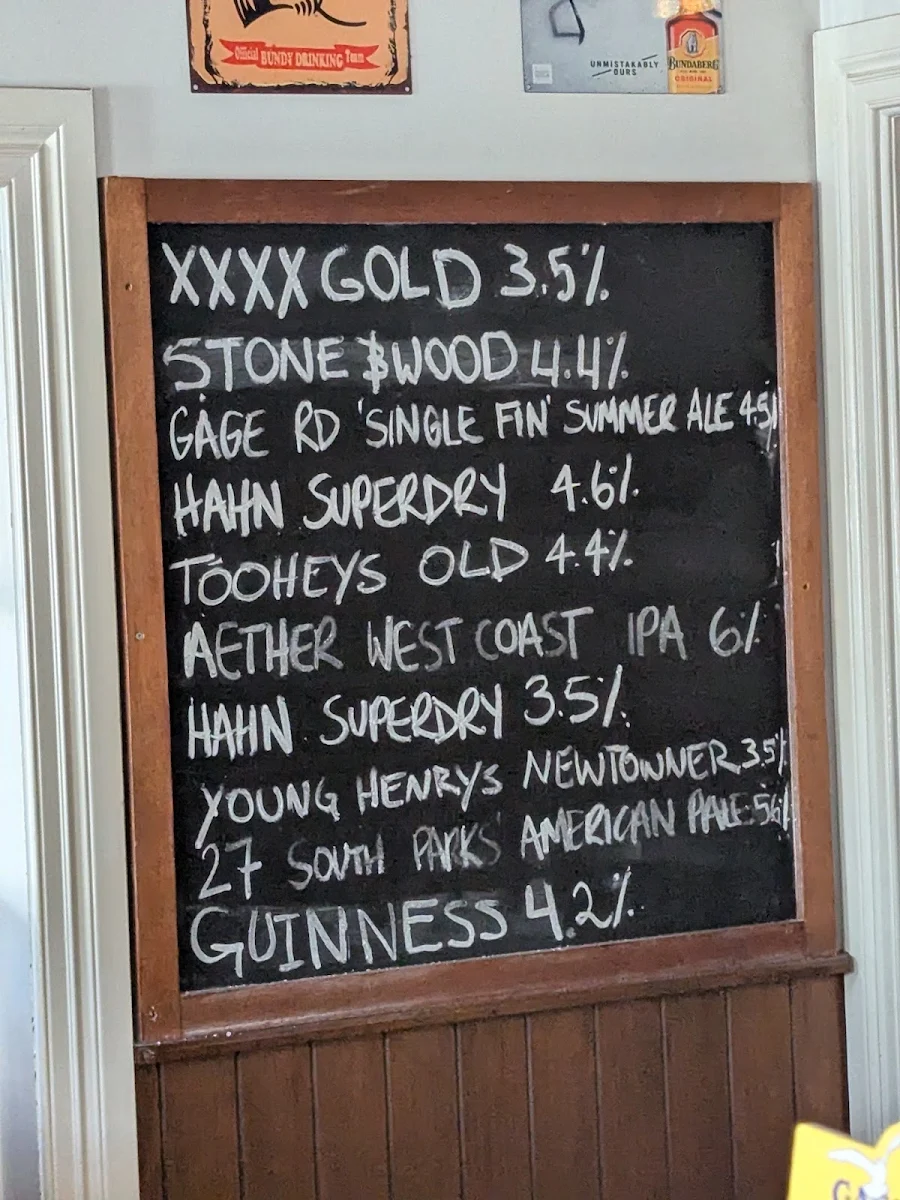 Official BUNDY DRINKING Team
UNMISTAKABLY
OURS
BUNDABERG
ORIGINAL
XXXX GOLD 3.5%
STONE & WOOD 4.4%
GAGE RD 'SINGLE FIN' SUMMER ALE 4.5%
HAHN SUPERDRY 4.6%
TOOHEYS OLD 4.4%
AETHER WEST COAST IPA 6%
HAHN SUPERDRY 3.5%
YOUNG HENRYS NEWTOWNER 3.5%
27 SOUTH PARKS AMERICAN PALE 5.6%
GUINNESS 4.2%